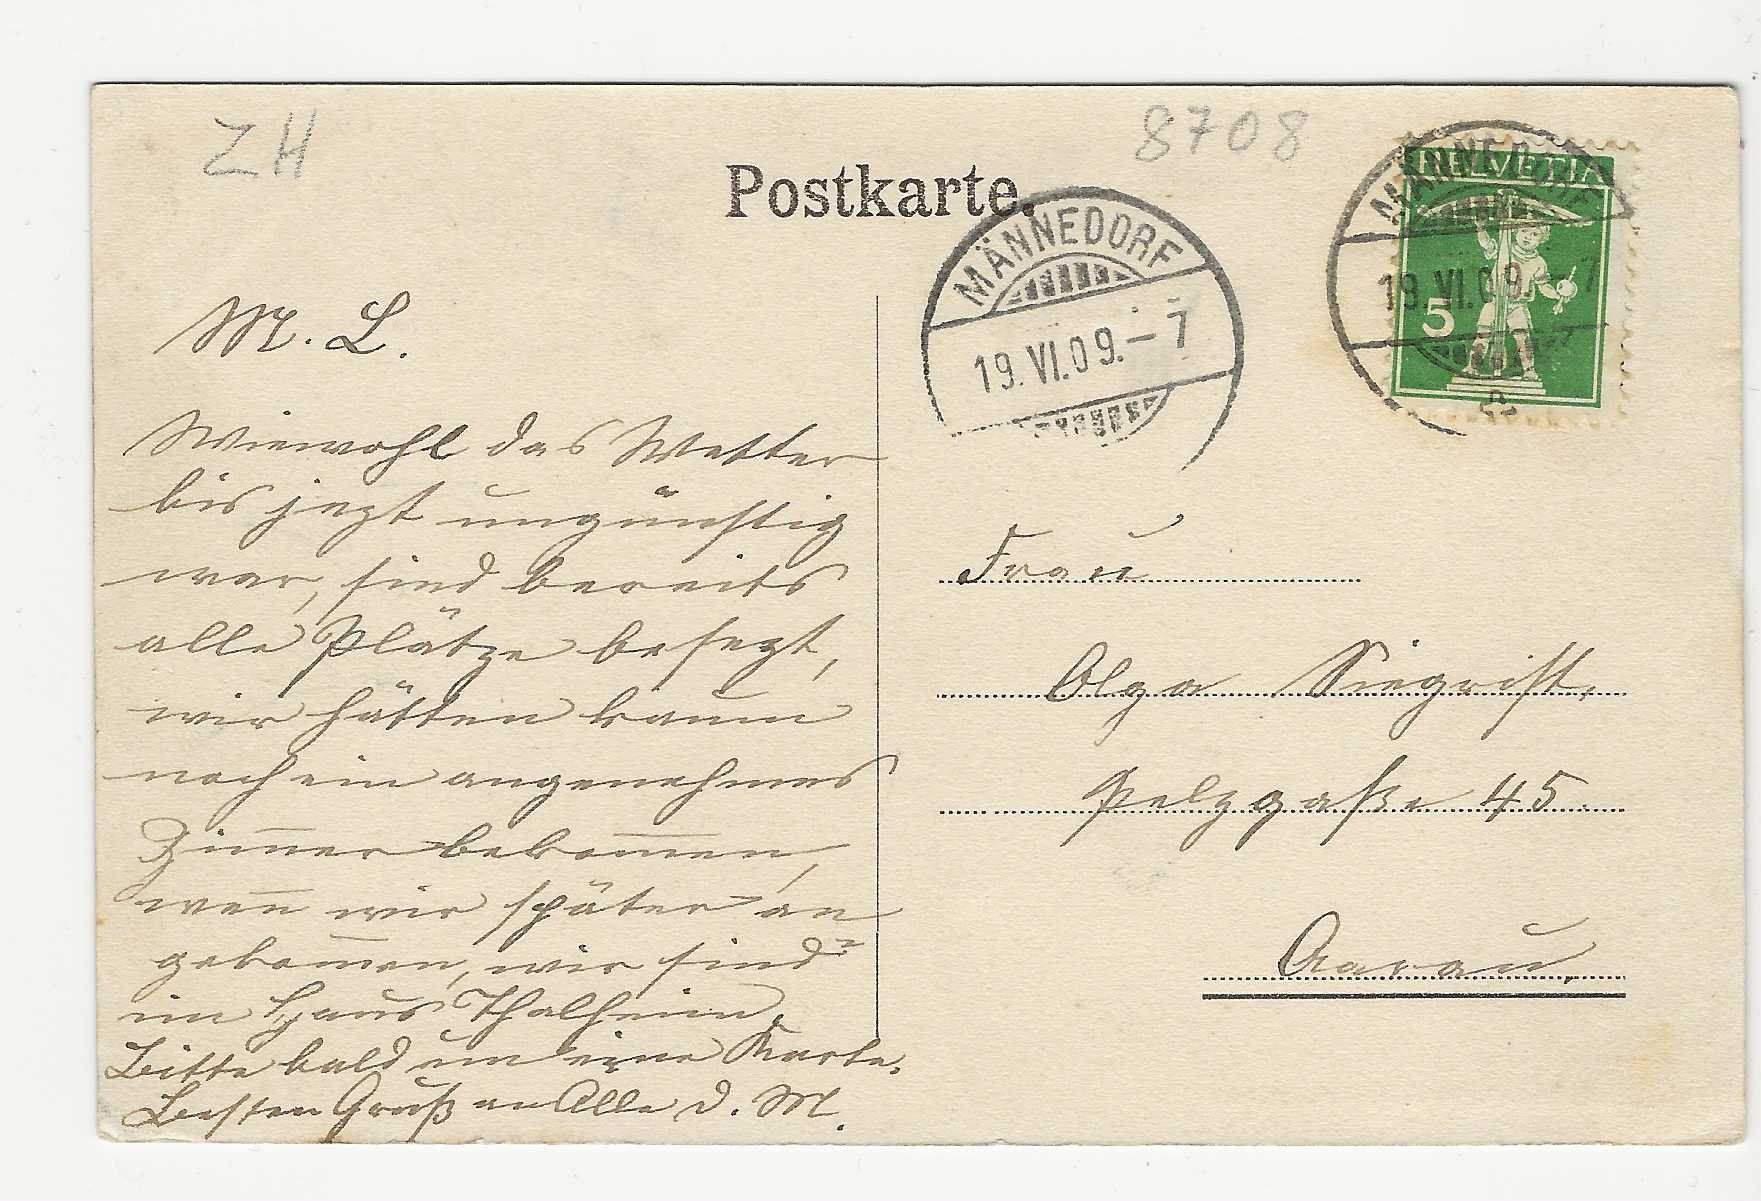 ZH
8708
Postkarte.
MÄNNEDORF
19.VI.09.–7
HELVETIA
5
MÄNNEDORF
19.VI.09.–7
M. L.
Wiewohl das Wetter
bis jezt ungünstig
war, sind bereits
alle Plätze besezt,
wir hätten kaum
noch ein angenehmes
Zim̅er bekom̅en,
wen̅ wir später an
gekom̅en, wir sind
im Haus Thalheim.
Bitte bald um eine Karte.
Besten Gruß an Alle d. M.
Frau
Olga Siegrist,
Pelzgaße 45.
Aarau.